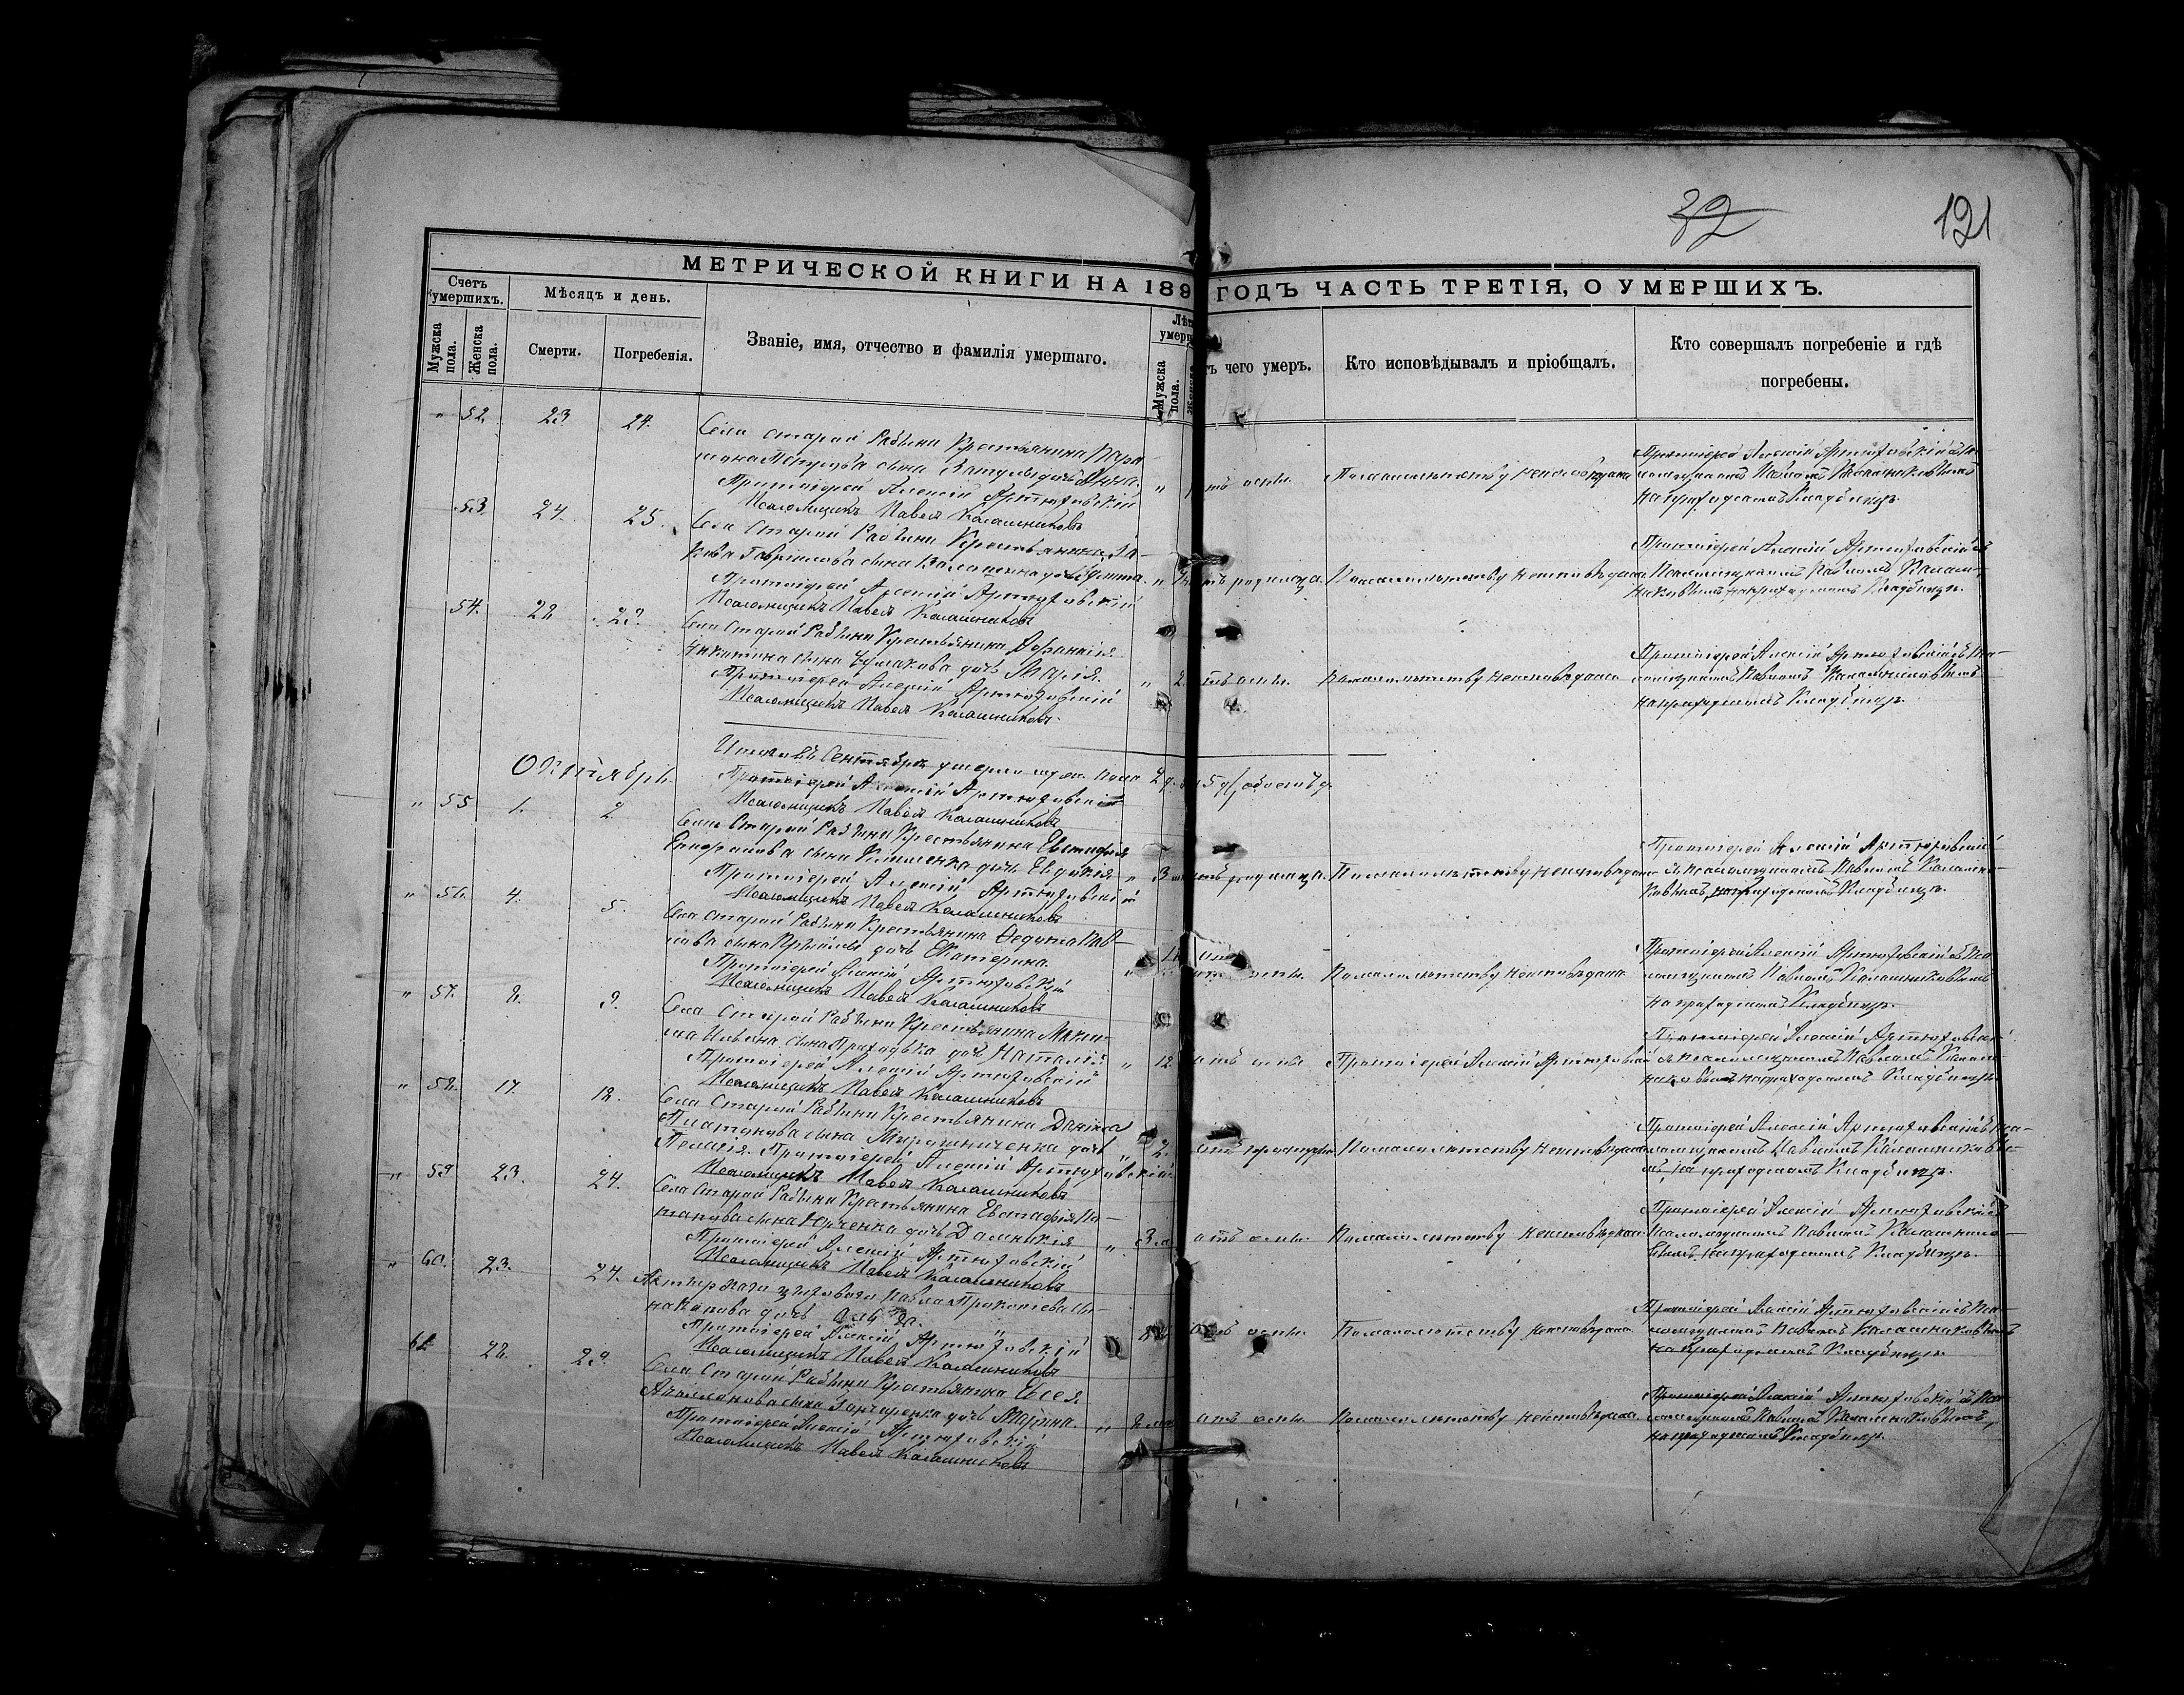 32
121
МЕТРИЧЕСКОЙ КНИГИ НА 189 ГОДЪ ЧАСТЬ ТРЕТІЯ, О УМЕРШИХЪ.
Счетъ умершихъ.
Мѣсяцъ и день.
Званіе, имя, отчество и фамилія умершаго.
чего умеръ.
Кто исповѣдывалъ и пріобщалъ.
Кто совершалъ погребеніе и гдѣ
погребены.
Мужска пола.
Женска пола.
Смерти.
Погребенія.
Мужска пола.
" 52. 23 24.
Села Старой Рабины Крестьянина
дочь Анна.
Протоіерей Алексій Артюховскій
Псаломщикъ Павелъ Калашниковъ
" отъ оспы. По малолѣтству неисповѣдана
Протоіерей Алексій Артюховскій съ Пса-
ломщикомъ Павломъ Калашниковымъ
на приходскомъ кладбищѣ.
53. 24. 25.
Села Старой Рабины Крестьянина Яко-
ва Гаврилова сына
Протоіерей Алексій Артюховскій
Псаломщикъ Павелъ Калашниковъ
" отъ родимца. По малолѣтству неисповѣдана
Протоіерей Алексій Артюховскій съ
Псаломщикомъ Павломъ Калаш-
никовымъ на приходскомъ кладбищѣ.
54. 22 23.
Села Старой Рабины Крестьянина Афанасія
Никитина сына Чумакова дочь Марія.
Протоіерей Алексій Артюховскій
Псаломщикъ Павелъ Калашниковъ.
" 2. отъ оспы. По малолѣтству неисповѣдана
Протоіерей Алексій Артюховскій съ Пса-
ломщикомъ Павломъ Калашниковымъ
на приходскомъ кладбищѣ.
Итого въ Сентябрѣ умерло муж. пола 2
Протоіерей Алексій Артюховскій
Псаломщикъ Павелъ Калашниковъ
Октябрь.
" 55 1. 2
Села Старой Рабины Крестьянина Евстафія
сына дочь Евдокія
Протоіерей Алексій Артюховскій
Псаломщикъ Павелъ Калашниковъ
" 3 отъ родимца. По малолѣтству неисповѣдана
Протоіерей Алексій Артюховскій
съ Псаломщикомъ Павломъ Калашни-
ковымъ, на приходскомъ кладбищѣ.
" 56. 4. 5.
Села Старой Рабины Крестьянина Федота Пав-
лова сына дочь Екатерина.
Протоіерей Алексій Артюховскій
Псаломщикъ Павелъ Калашниковъ
" отъ оспы. По малолѣтству неисповѣдана
Протоіерей Алексій Артюховскій съ Пса-
ломщикомъ Павломъ Калашниковымъ
на приходскомъ кладбищѣ.
" 57. 8. 9.
Села Старой Рабины Крестьянина Макси-
ма Ильина сына Приходька дочь Наталія.
Протоіерей Алексій Артюховскій
Псаломщикъ Павелъ Калашниковъ
" 12. отъ оспы Протоіерей Алексій Артюховскій
Протоіерей Алексій Артюховскій
съ Псаломщикомъ Павломъ Калаш-
никовымъ на приходскомъ кладбищѣ.
" 58. 17. 18.
Села Старой Рабины Крестьянина Даніила
Платонова сына Мирошниченка дочь
Пелагія. Протоіерей Алексій Артюховскій.
Псаломщикъ Павелъ Калашниковъ
" 2. отъ простуды По малолѣтству неисповѣдана
Протоіерей Алексій Артюховскій съ Пса-
ломщикомъ Павломъ Калашниковы-
мъ, на приходскомъ кладбищѣ.
" 59 23. 24.
Села Старой Рабины Крестьянина Евстафія По-
тапова сына Юрченка дочь Домникія
Протоіерей Алексій Артюховскій
Псаломщикъ Павелъ Калашниковъ
" 3 отъ оспы. По малолѣтству неисповѣдана
Протоіерей Алексій Артюховскій съ
Псаломщикомъ Павломъ Калашнико-
вымъ, на приходскомъ кладбищѣ.
" 60. 23. 24.
Павла Прокопіева сы-
на дочь Ольга.
Протоіерей Алексій Артюховскій
Псаломщикъ Павелъ Калашниковъ
отъ оспы. По малолѣтству неисповѣдана
Протоіерей Алексій Артюховскій съ Пса-
ломщикомъ Павломъ Калашниковымъ
на приходскомъ кладбищѣ
61. 28. 29.
Села Старой Рабины Крестьянина Евсея
сына Гончаренка дочь Марина.
Протоіерей Алексій Артюховскій
Псаломщикъ Павелъ Калашниковъ
" 8 отъ оспы. По малолѣтству неисповѣдана.
Протоіерей Алексій Артюховскій съ Пса-
ломщикомъ Павломъ Калашниковымъ,
на приходскомъ кладбищѣ.